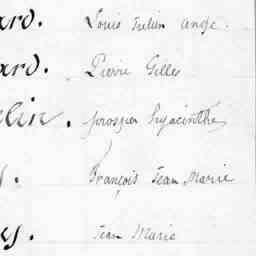 ard. Louis Julien ange.
ard. Pierre Gilles
elin. prosper hyacinthe
s. François Jean Marie
es. Jean Marie